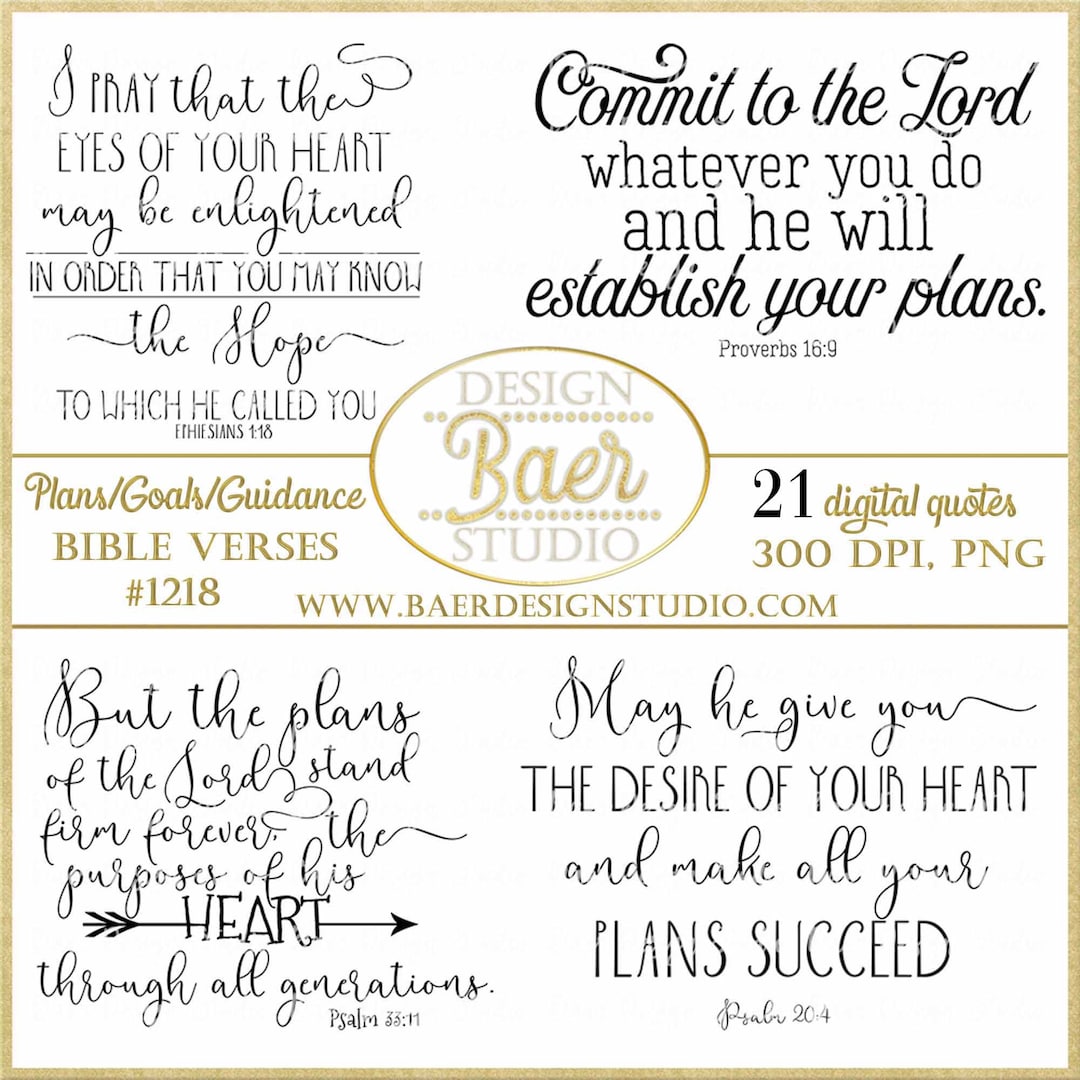 I PRAY that the
EYES OF YOUR HEART
may be enlightened
IN ORDER THAT YOU MAY KNOW
the Hope
TO WHICH HE CALLED YOU
ETHIESIANS 1:18
Commit to the Lord
whatever you do
and he will
establish your plans.
Proverbs 16:9
Plans/Goals/Guidance
BIBLE VERSES
#1218
DESIGN
Baer
STUDIO
21 digital quotes
300 DPI, PNG
WWW.BAERDESIGNSTUDIO.COM
But the plans
of the Lord stand
firm forever, the
purposes of his
HEART
through all generations.
Psalm 33:11
May he give you
THE DESIRE OF YOUR HEART
and make all your
PLANS SUCCEED
Psabr 20:4